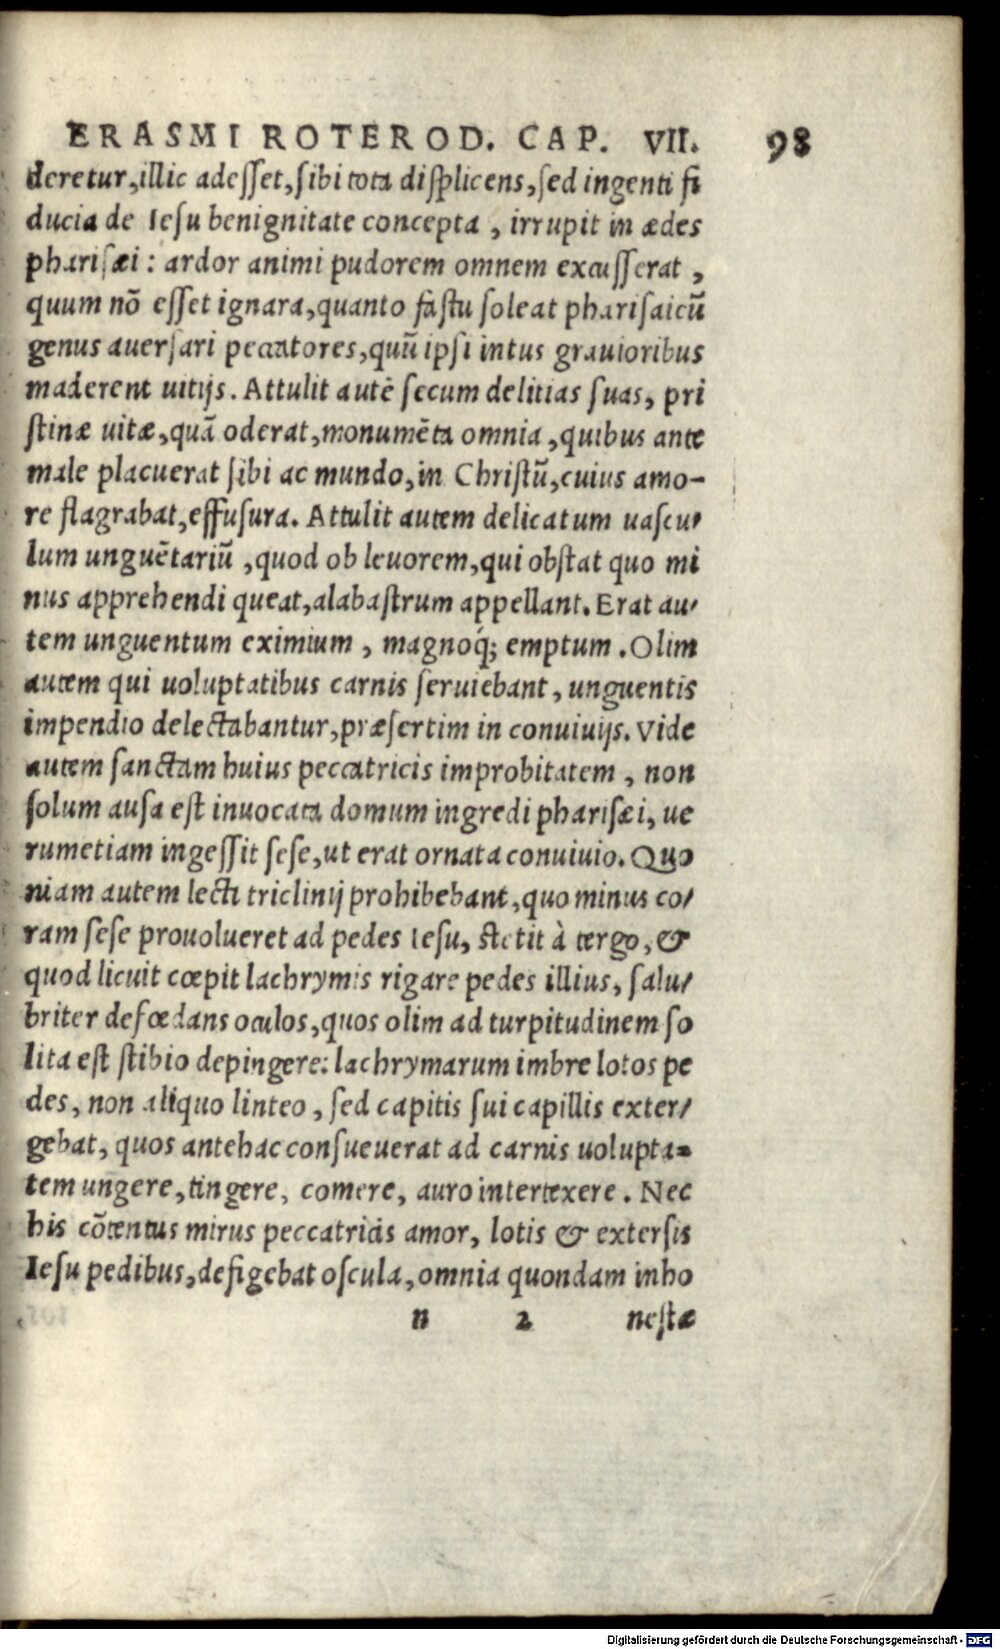 ERASMI ROTEROD. CAP. VII. 98
deretur, illic adesset, sibi tota displicens, sed ingenti fi
ducia de Iesu benignitate concepta, irrupit in ædes
pharisæi: ardor animi pudorem omnem excusserat,
quum nõ esset ignara, quanto fastu soleat pharisaicũ
genus auersari peccatores, quũ ipsi intus grauioribus
maderent uitijs. Attulit autẽ secum delitias suas, pri
stinæ uitæ, quã oderat, monumẽta omnia, quibus ante
male placuerat sibi ac mundo, in Christũ, cuius amo-
re flagrabat, effusura. Attulit autem delicatum uascu-
lum unguẽtariũ, quod ob leuorem, qui obstat quo mi
nus apprehendi queat, alabastrum appellant. Erat au-
tem unguentum eximium, magnoq́; emptum. Olim
autem qui uoluptatibus carnis seruiebant, unguentis
impendio delectabantur, præsertim in conuiuijs. Vide
autem sanctam huius peccatricis improbitatem, non
solum ausa est inuocata domum ingredi pharisæi, ue
rumetiam ingessit sese, ut erat ornata conuiuio. Quo
niam autem lecti triclinij prohibebant, quo minus co-
ram sese prouolueret ad pedes Iesu, stetit à tergo, &
quod licuit cœpit lachrymis rigare pedes illius, salu-
briter defœdans oculos, quos olim ad turpitudinem so
lita est stibio depingere: lachrymarum imbre lotos pe
des, non aliquo linteo, sed capitis sui capillis exter-
gebat, quos antehac consueuerat ad carnis uolupta-
tem ungere, tingere, comere, auro intertexere. Nec
his cõtentus mirus peccatricis amor, lotis & extersis
Iesu pedibus, defigebat oscula, omnia quondam inho
n 2 nestæ
Digitalisierung gefördert durch die Deutsche Forschungsgemeinschaft - DFG